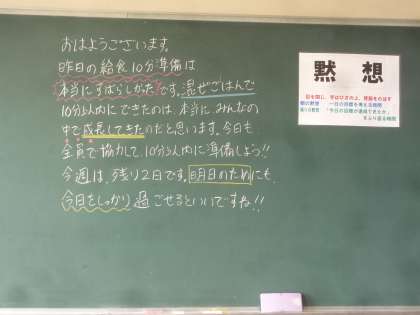 おはようございます。
昨日の給食10分準備は
本当にすばらしかったです。混ぜごはんで
10分以内にできたのは、本当に、みんなの
中で成長してきたのだと思います。今日も
全員で協力して、10分以内に準備しよう!!
今週は、残り2日です。明日のためにも、
今日をしっかり過ごせるといいですね!!
黙想